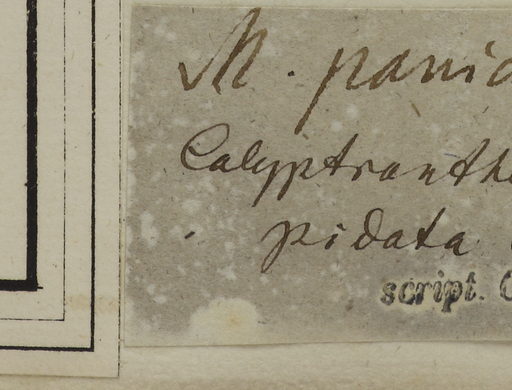 M. panic
Calyptranthe
pidata
script.